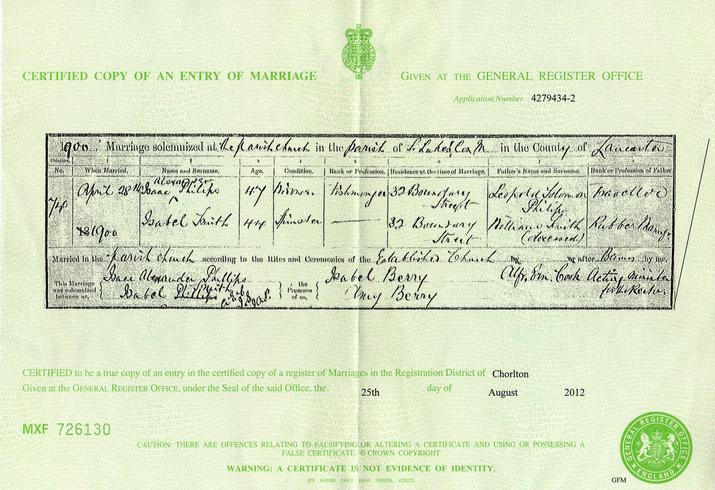 CERTIFIED COPY OF AN ENTRY OF MARRIAGE
GIVEN AT THE GENERAL REGISTER OFFICE
Application Number 4279434-2
1900. Marriage solemnized at the parish church in the parish of S. Lukes, Con M. in the County of Lancaster
No. When Married. Name and Surname. Age. Condition. Rank or Profession. Residence at the time of Marriage. Father's Name and Surname. Rank or Profession of Father.
74 April 28th Isaac Alexander Philips 47 Fishmonger 32 Boundary Street Leopold Solomon Philips Traveller
1900 Isabel Smith 44 Spinster — 32 Boundary Street William Smith (deceased) Rubber
Married in the parish church according to the Rites and Ceremonies of the Established Church by or after Banns by me,
This Marriage was solemnized between us, Isaac Alexander Phillips in the Presence of us, Isabel Berry Alf. Em. Cook Acting minister
Isabel Phillips Amy Berry for the Rector.
CERTIFIED to be a true copy of an entry in the certified copy of a register of Marriages in the Registration District of Chorlton
Given at the GENERAL REGISTER OFFICE, under the Seal of the said Office, the 25th day of August 2012
MXF 726130
CAUTION: THERE ARE OFFENCES RELATING TO FALSIFYING OR ALTERING A CERTIFICATE AND USING OR POSSESSING A
FALSE CERTIFICATE. © CROWN COPYRIGHT
WARNING: A CERTIFICATE IS NOT EVIDENCE OF IDENTITY.
GENERAL REGISTER OFFICE
ENGLAND
GFM